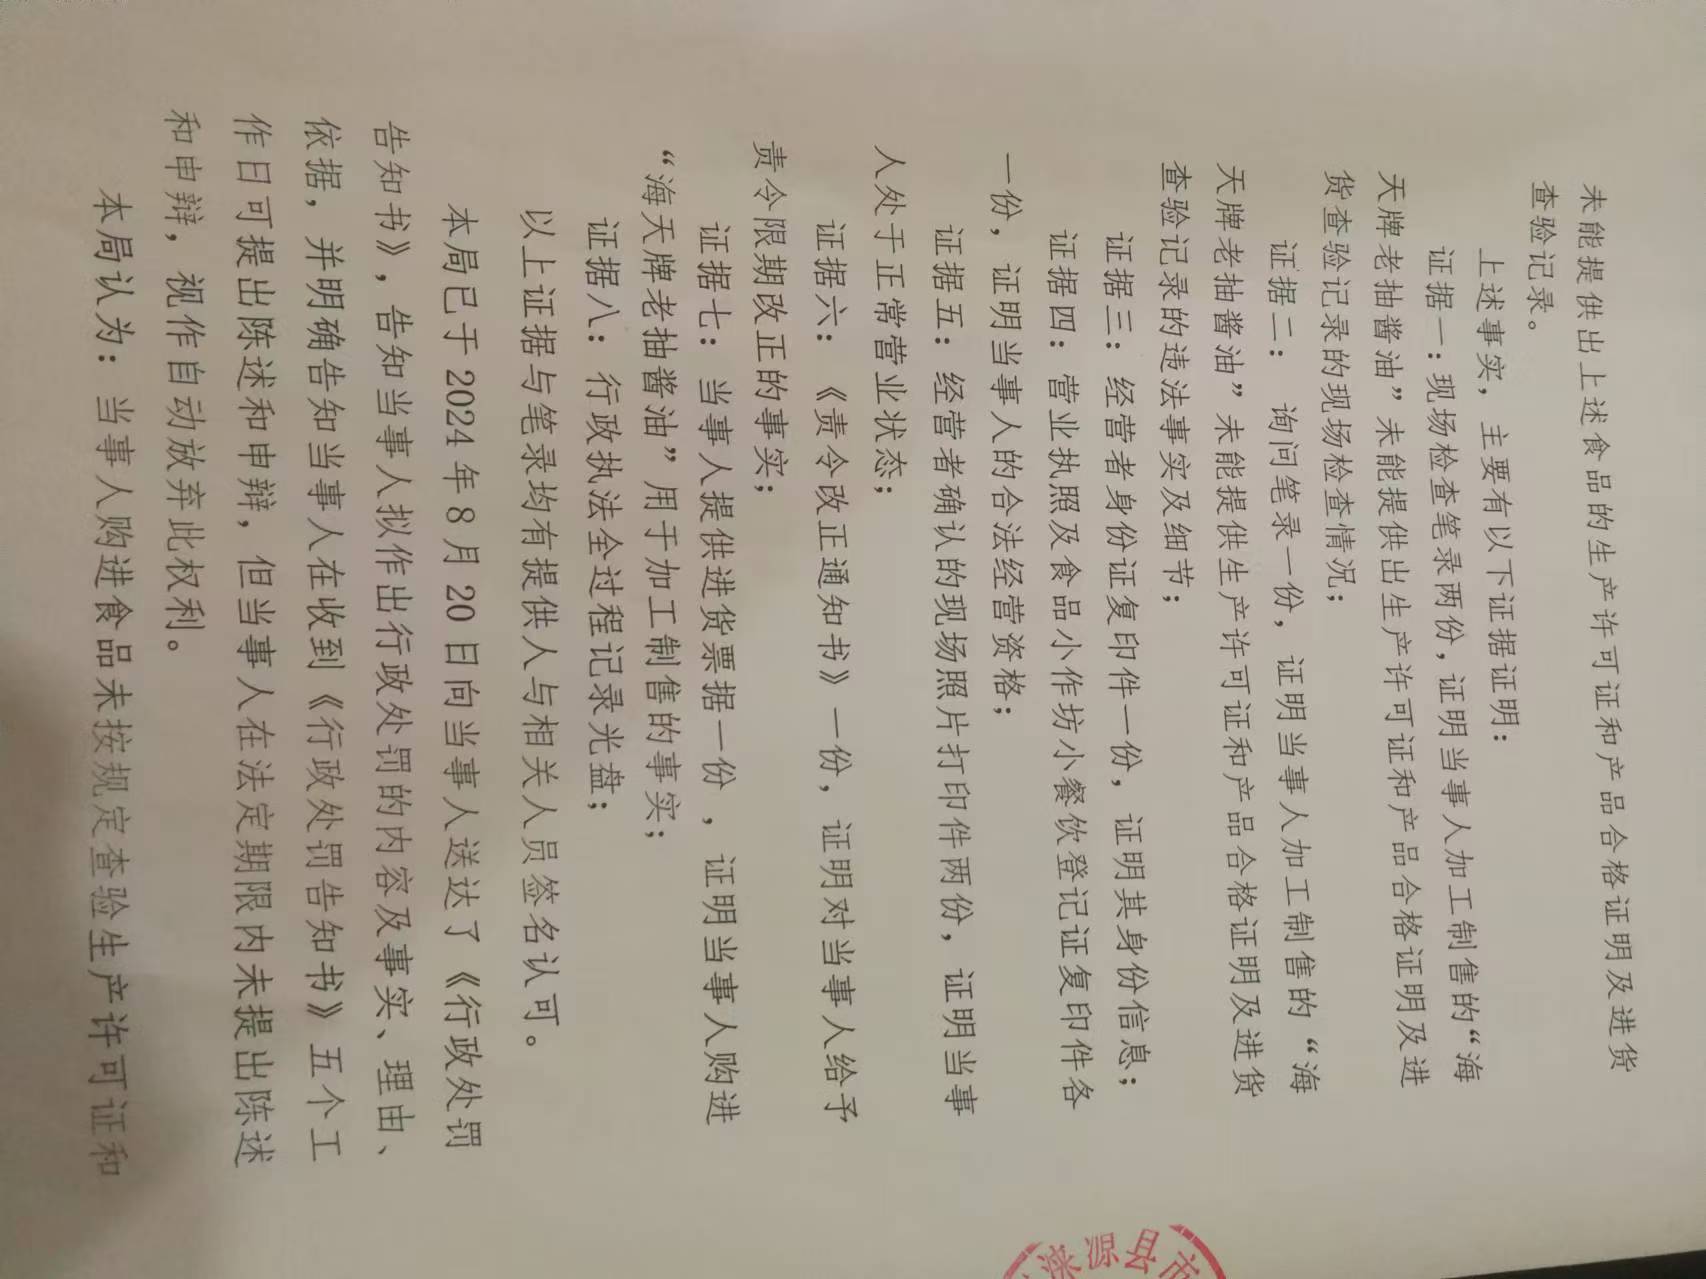 未能提供出上述食品的生产许可证和产品合格证明及进货
查验记录。
上述事实，主要有以下证据证明：
证据一：现场检查笔录两份，证明当事人加工制售的“海
天牌老抽酱油”未能提供出生产许可证和产品合格证明及进
货查验记录的现场检查情况；
证据二： 询问笔录一份，证明当事人加工制售的“海
天牌老抽酱油”未能提供生产许可证和产品合格证明及进货
查验记录的违法事实及细节；
证据三：经营者身份证复印件一份，证明其身份信息；
证据四：营业执照及食品小作坊小餐饮登记证复印件各
一份，证明当事人的合法经营资格；
证据五：经营者确认的现场照片打印件两份，证明当事
人处于正常营业状态；
证据六：《责令改正通知书》一份，证明对当事人给予
责令限期改正的事实；
证据七：当事人提供进货票据一份，证明当事人购进
“海天牌老抽酱油”用于加工制售的事实；
证据八：行政执法全过程记录光盘；
以上证据与笔录均有提供人与相关人员签名认可。
本局已于2024年8月20日向当事人送达了《行政处罚
告知书》，告知当事人拟作出行政处罚的内容及事实、理由、
依据，并明确告知当事人在收到《行政处罚告知书》五个工
作日可提出陈述和申辩，但当事人在法定期限内未提出陈述
和申辩，视作自动放弃此权利。
本局认为：当事人购进食品未按规定查验生产许可证和
涞源县市